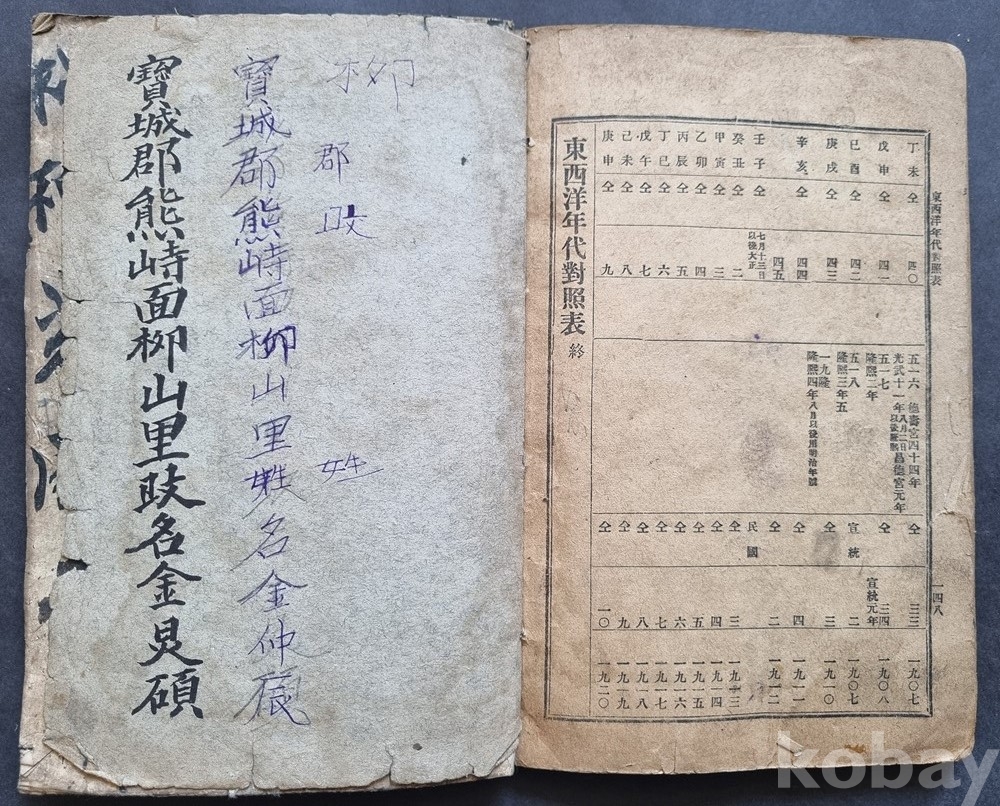 柳
郡
姓
寶城郡熊峙面柳山里
名金仲
寶城郡熊峙面柳山里
名金炅碩
東西洋年代對照表
一四八
丁未 仝 四〇 五一六 德壽宮四十四年 光武十一年八月二日以後隆熙 昌德宮元年 仝 三三 一九〇七
戊申 仝 四一 五一七 隆熙二年 仝 三四 一九〇八
己酉 仝 四二 五一八 隆熙三年 宣統 宣統元年 二 一九〇
庚戌 仝 四三 五一九 隆熙四年八月以後用明治年號 仝 三 一九一〇
辛亥 仝 四四 仝 四 一九一一
壬子 仝 四五 七月十三日以後大正 民國 二 一九一二
癸丑 仝 二 仝 三 一九一三
甲寅 仝 三 仝 四 一九一四
乙卯 仝 四 仝 五 一九一五
丙辰 仝 五 仝 六 一九一六
丁巳 仝 六 仝 七 一九一七
戊午 仝 七 仝 八 一九一八
己未 仝 八 仝 九 一九一九
庚申 仝 九 仝 一〇 一九二〇
東西洋年代對照表 終
kobay